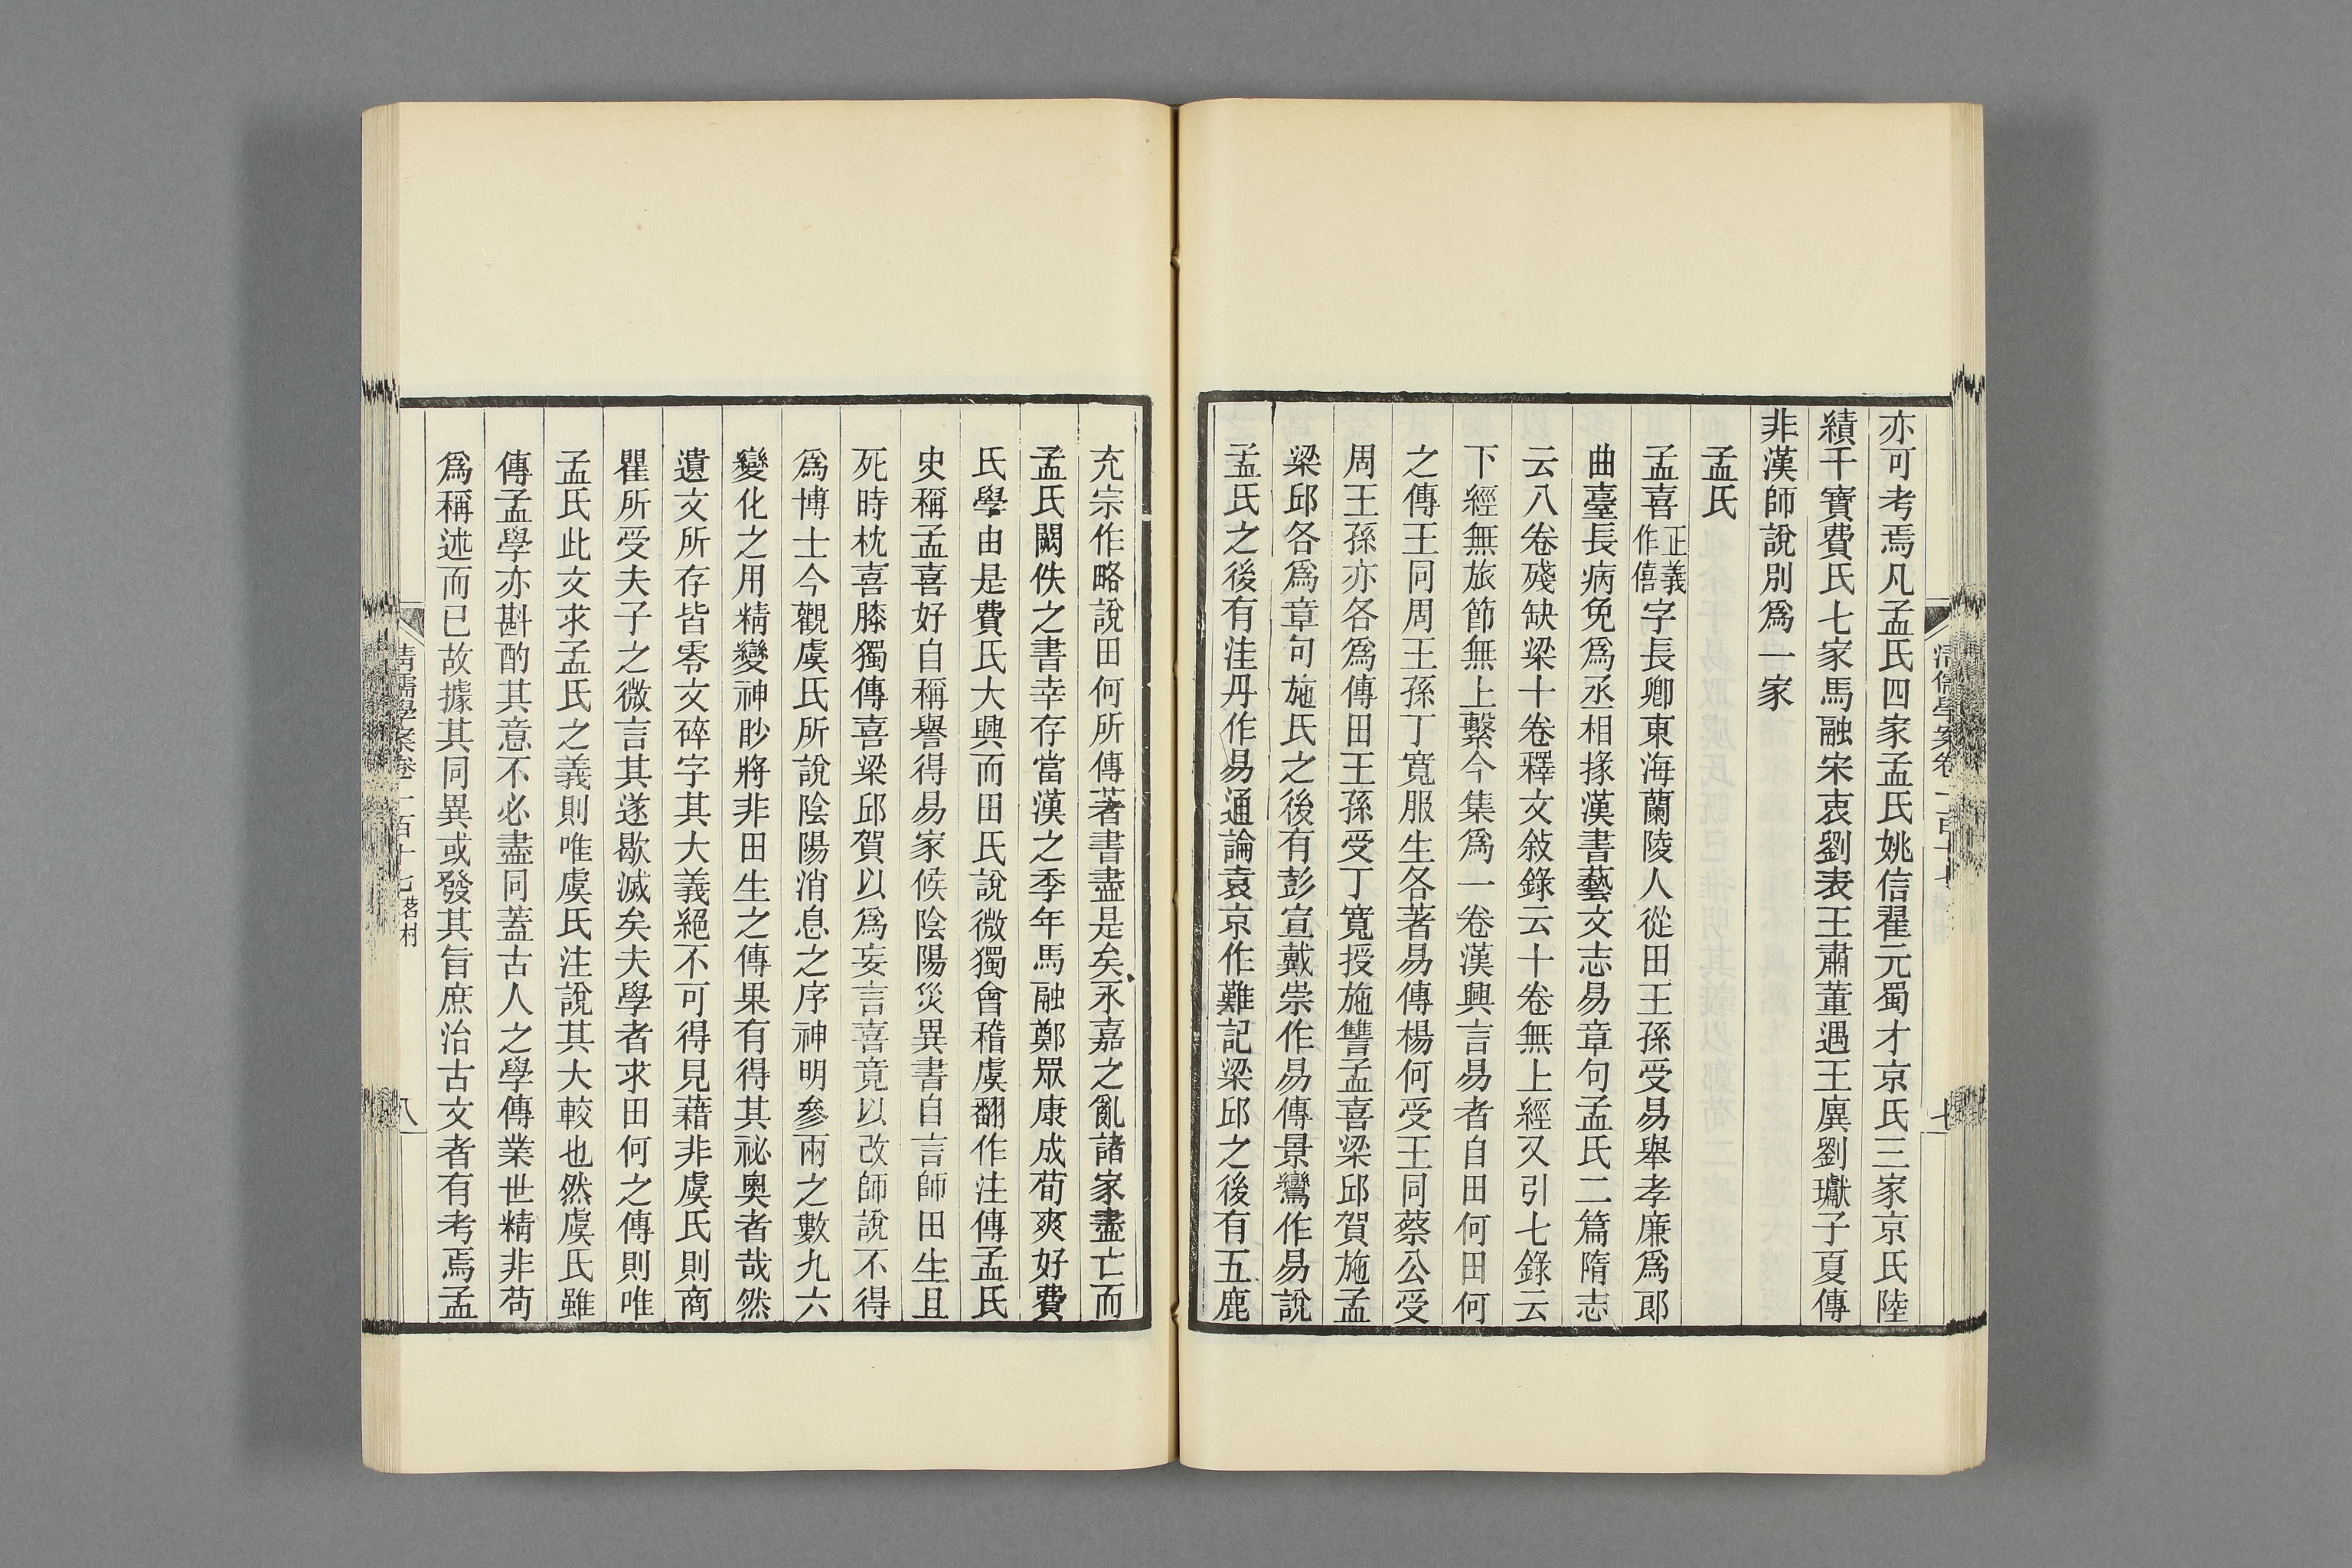 亦可考焉凡孟氏四家孟氏姚信翟元蜀才京氏三家京氏陸
績干寶費氏七家馬融宋衷劉表王肅董遇王廙劉瓛子夏傳
非漢師說別爲一家
孟氏
孟喜正義作僖字長卿東海蘭陵人從田王孫受易舉孝廉爲郞
曲臺長病免爲丞相掾漢書藝文志易章句孟氏二篇隋志
云八卷殘缺梁十卷釋文敍錄云十卷無上經又引七錄云
下經無旅節無上繫今集爲一卷漢興言易者自田何田何
之傳王同周王孫丁寬服生各著易傳楊何受王同蔡公受
周王孫亦各爲傳田王孫受丁寬授施讐孟喜梁邱賀施孟
梁邱各爲章句施氏之後有彭宣戴崇作易傳景鸞作易說
孟氏之後有洼丹作易通論袁京作難記梁邱之後有五鹿
充宗作略說田何所傳著書盡是矣永嘉之亂諸家盡亡而
孟氏闕佚之書幸存當漢之季年馬融鄭眾康成荀爽好費
氏學由是費氏大興而田氏說微獨會稽虞翻作注傳孟氏
史稱孟喜好自稱譽得易家候陰陽災異書自言師田生且
死時枕喜膝獨傳喜梁邱賀以爲妄言喜竟以改師說不得
爲博士今觀虞氏所說陰陽消息之序神明參兩之數九六
變化之用精變神眇將非田生之傳果有得其祕奧者哉然
遺文所存皆零文碎字其大義絕不可得見藉非虞氏則商
瞿所受夫子之微言其遂歇滅矣夫學者求田何之傳則唯
孟氏此文求孟氏之義則唯虞氏注說其大較也然虞氏雖
傳孟學亦斟酌其意不必盡同蓋古人之學傳業世精非苟
爲稱述而已故據其同異或發其旨庶治古文者有考焉孟
清儒學案卷一百十七茗村
八